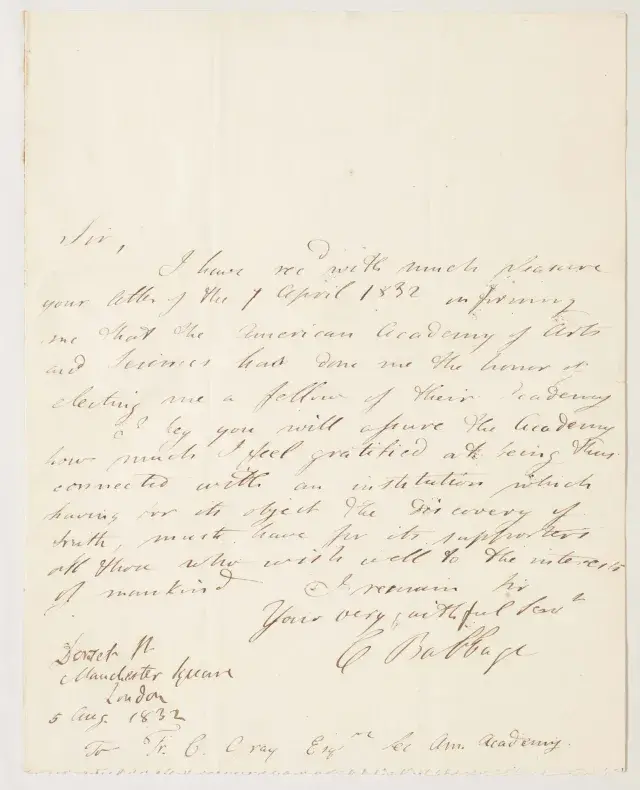 Sir,
I have rec^d with much pleasure
your letter of the 7 April 1832 informing
me that the American Academy of Arts
and Sciences had done me the honor of
electing me a fellow of their Academy
I beg you will assure the Academy
how much I feel gratified at being thus
connected with an institution which
having for its object the Discovery of
truth, must have for its supporters
all those who wish well to the interests
of mankind
I remain Sir
Your very faithful Serv^t
C Babbage
Dorset St
Manchester Square
London
5 Aug. 1832
To Fr. C. Gray Esq^re Sec Am. Academy.